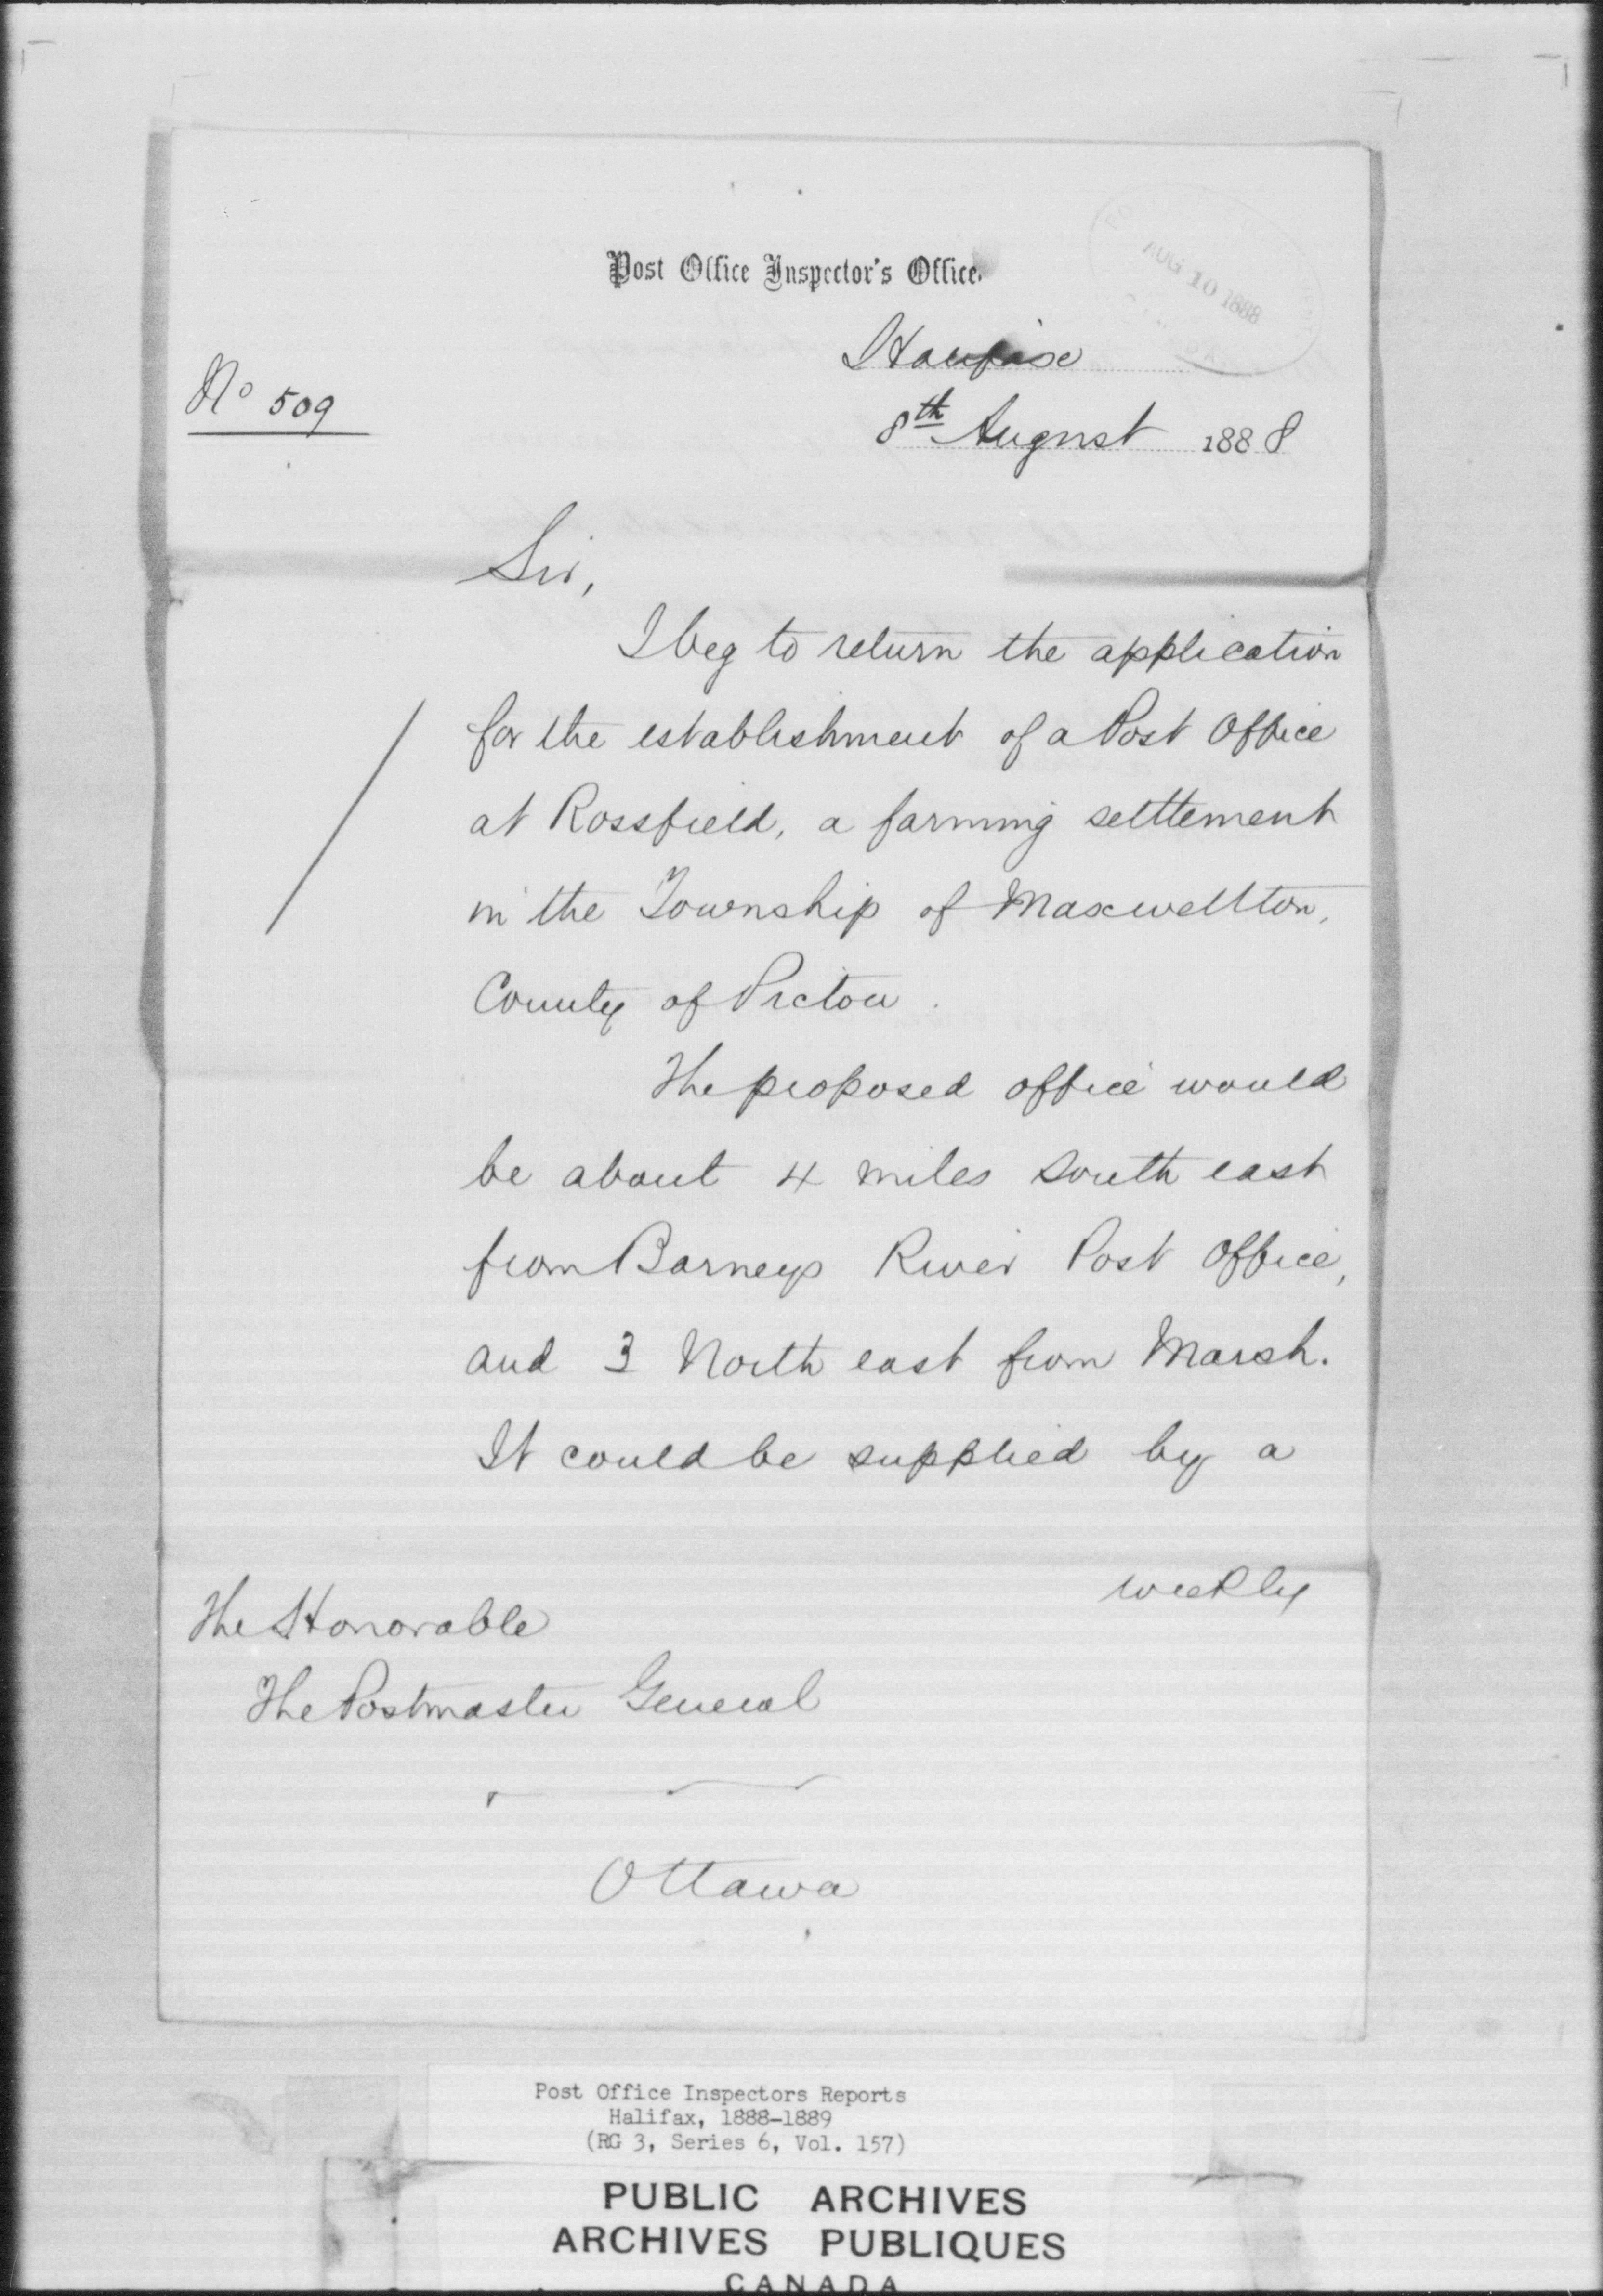 Post Office Inspector's Office,
AUG 10 1888
Halifax
No 509
8th August 1888
Sir,
I beg to return the application
for the establishment of a Post Office
at Rossfield, a farming settlement
in the Township of Maxwellton,
County of Pictou.
The proposed office would
be about 4 miles South east
from Barneys River Post Office,
and 3 North east from Marsh.
It could be supplied by a
weekly
The Honorable
The Postmaster General
Ottawa
Post Office Inspectors Reports
Halifax, 1888-1889
(RG 3, Series 6, Vol. 157)
PUBLIC ARCHIVES
ARCHIVES PUBLIQUES
CANADA